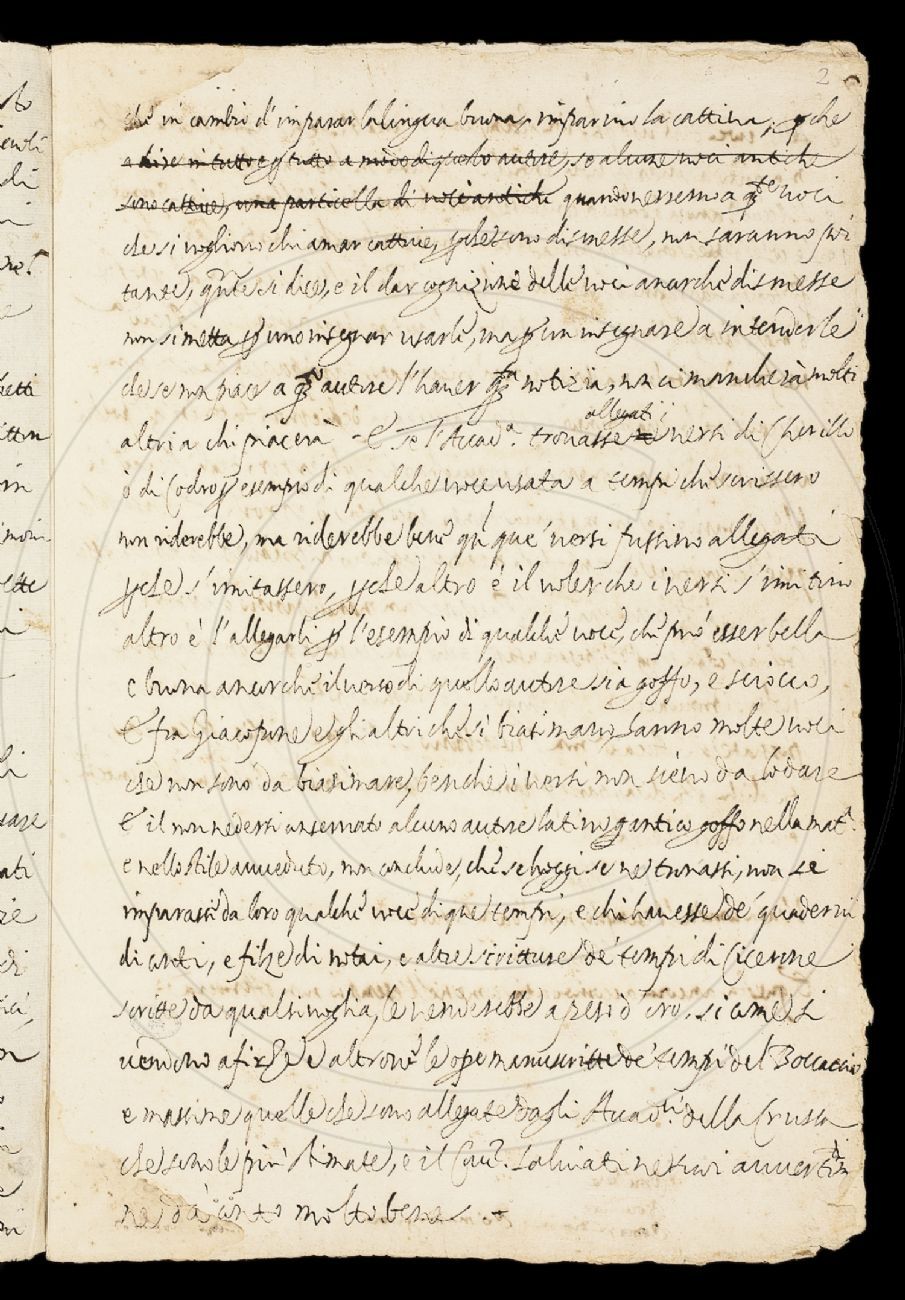 2
che in cambio d'imparar la lingua buona, imparino la cattiva, ꝑche
a dire in tutto e ꝑ tutto a modo di questo autore, se alcune voci antiche
sono cattive, una particella di voci antiche quando verremo a q̄ste voci
che si vogliono chiamar cattive, ꝑche sono dismesse, non saranno poi
tante, qn̄te ei dice, e il dar cognizione delle voci ancorche dismesse
non si metta ꝑ uno insegnar usarle, ma ꝑ un insegnare a intenderle
che se non piacer a q̄sto autore l'haver q̄sta notizia, non ci mancherà molti
altri a chi piacerà - E se l'Accad.ª trovasse allegati i versi di Cherillo
ò di Codro ꝑ esempio di qualche voce usata a tempi che scrissero
non riderebbe, ma riderebbe bene qn̄ que' versi fussino allegati
ꝑche s'imitassero, ꝑche altro è il voler che i versi s'imitino
altro è l'allegarli ꝑ l'esempio di qualche voce, che può esser bella
e buona ancorche il verso di quello autore sia goffo, e sciocco,
E fra Giacopone e gli altri che si biasimano, hanno molte voci
che non sono da biasimare, benche i versi non sieno da lodare
E il non vedersi conservato alcuno autore latino antico goffo nella mat.ª
e nello stile avveduto, non conclude, che se hoggi se ne trovassi, non si
imparasse da loro qualche voce di que' tempi, e chi havesse de' quaderni
di conti, e filze di notai, e altre scritture de' tempi di Cicerone
scritte da qualsivoglia, le venderebbe a peso d'oro. si come si
vendono a firẽze e altrove le ope manuscritte de' tempi del Boccaccio
e massime quelle che sono allegate dagli Accad.ci della Crusca
che sono le più stimate, e il Cav.r Salviati ne suoi avvertim.ti
ne dà conto molto bene.